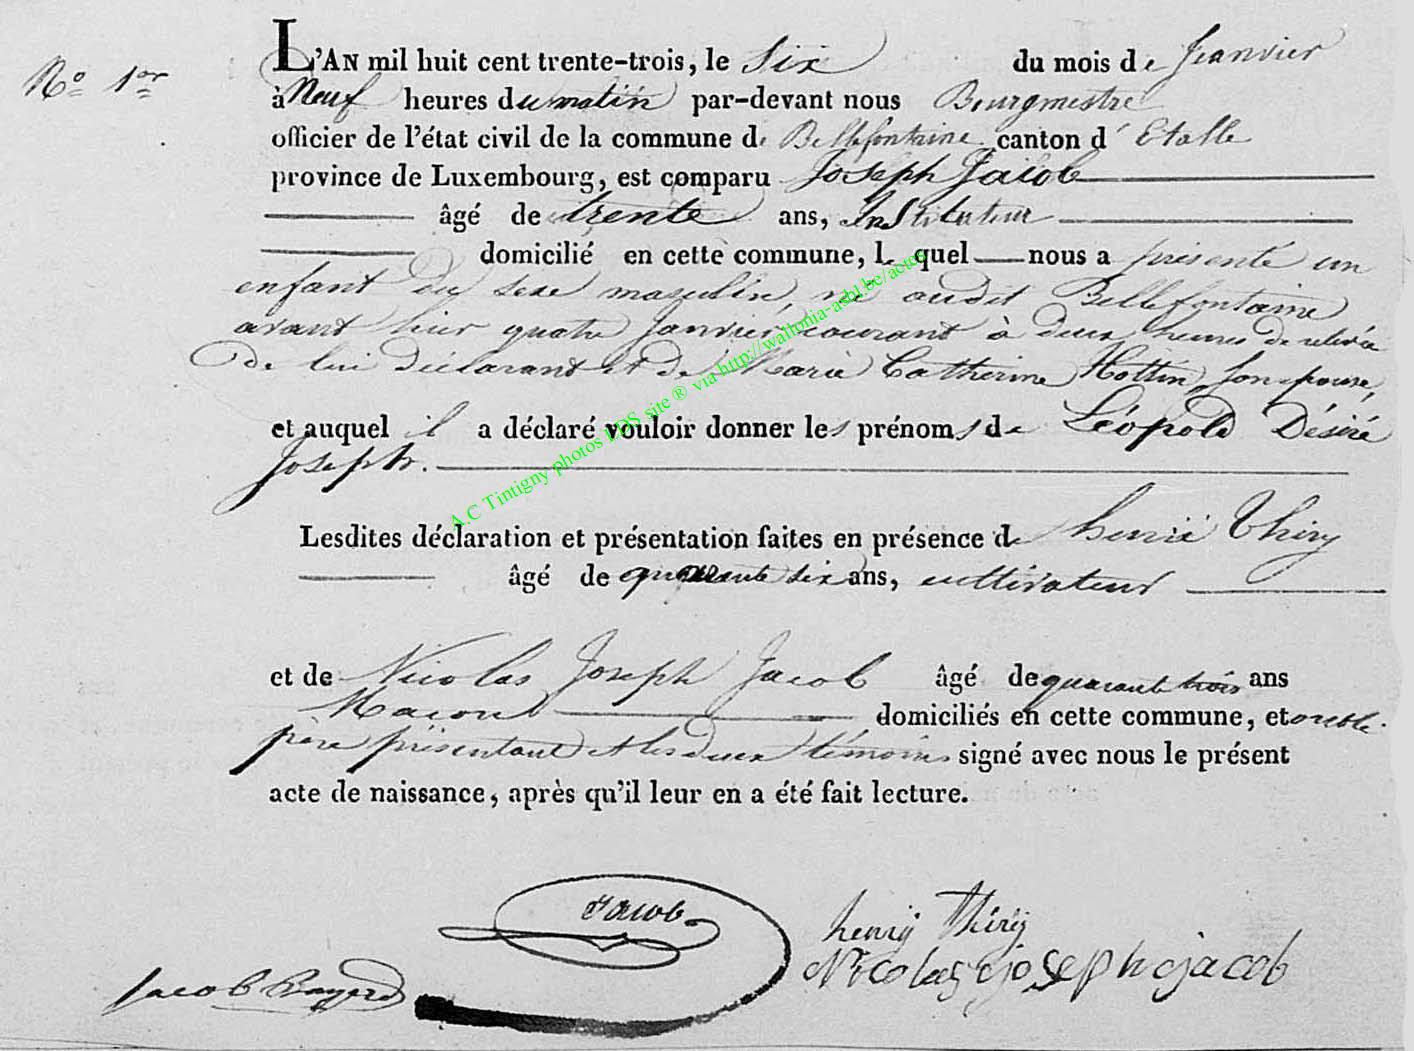 N.º 1.er
L'AN mil huit cent trente-trois, le Six du mois de Jeanvier
à Neuf heures du matin par-devant nous Bourgmestre
officier de l'état civil de la commune de Bellefontaine canton d' Etalle
province de Luxembourg, est comparu Joseph Jacob
âgé de trente ans, Instituteur
domicilié en cette commune, le quel nous a présenté un
enfant du sexe masculin, né audit Bellefontaine
avant hier quatre Janvier courant à deux heures de relevée
de lui déclarant et de Marie Catherine Hottin, son épouse,
et auquel il a déclaré vouloir donner les prénoms de Léopold Désiré
Joseph.
Lesdites déclaration et présentation faites en présence de henri Thiry
âgé de quarante six ans, cultivateur
et de Nicolas Joseph Jacob âgé de quarante trois ans
Macon domiciliés en cette commune, et ont le
père présentant et les deux témoins signé avec nous le présent
acte de naissance, après qu'il leur en a été fait lecture.
Jacob
henrij Thirij
Nicolas josephe jacob
Jacob
A.C Tintigny photos LDS site ® via http://wallonia-asbl.be/actes